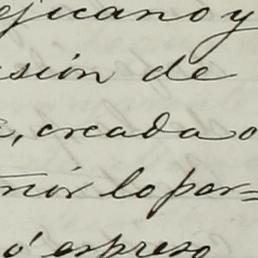 ejicano y
sión de
, creada o
rior lo par=
ó espreso